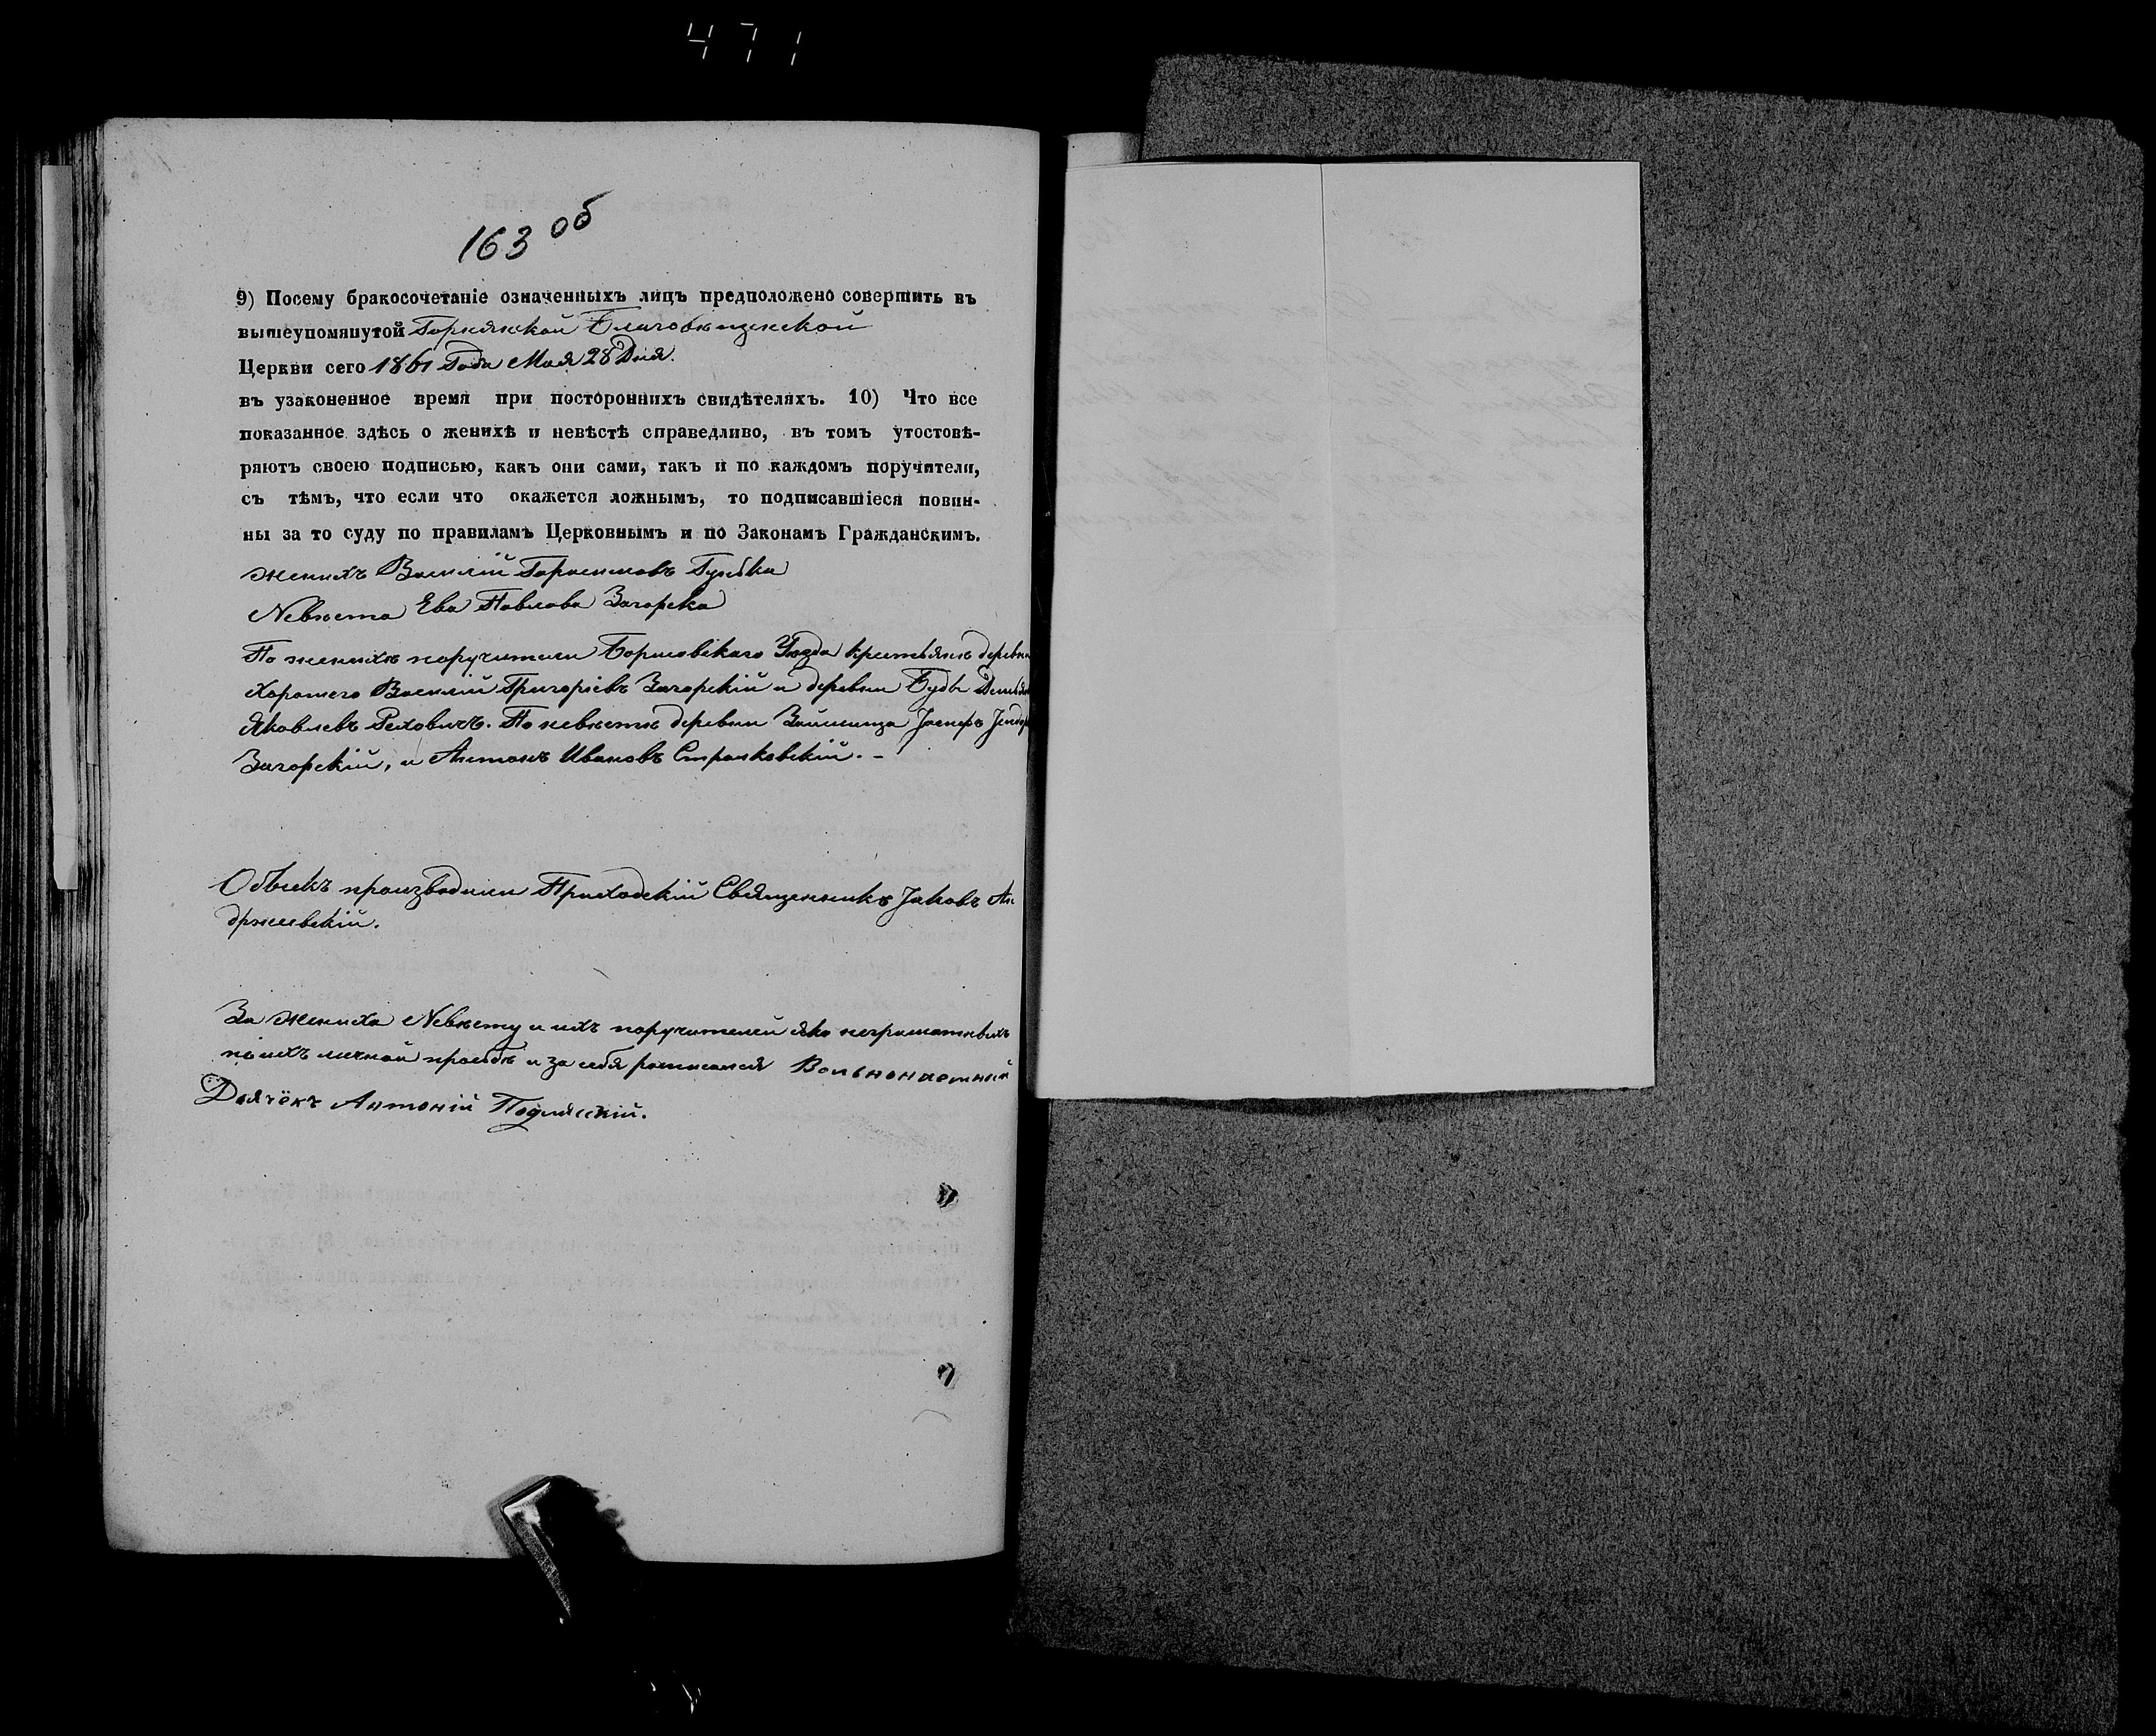 471
163 об
9) Посему бракосочетаніе означенныхъ лицъ предположено совершить въ
вышеупомянутой Благовѣщенской
Церкви сего 1861 Года Мая 28 Дня.
въ узаконенное время при постороннихъ свидѣтеляхъ. 10) Что все
показанное здѣсь о женихѣ и невѣстѣ справедливо, въ томъ утостовѣ-
ряютъ своею подписью, какъ они сами, такъ и по каждомъ поручители,
съ тѣмъ, что если что окажется ложнымъ, то подписавшіеся повин-
ны за то суду по правиламъ Церковнымъ и по Законамъ Гражданскимъ.
женихъ Василій Гарасимовъ
Невѣста Ева Павлова Загорска
По женихѣ поручители Борисовскаго Уѣзда деревни
Хорошего Василій Григоріевъ Загорскій и деревни Буды
Яковлевъ. По невѣстѣ деревни
Загорскій, и Антонъ Ивановъ
Обыскъ производили Приходскій Священникъ Іаковъ Ан
држеевскій.
За жениха Невѣсту и ихъ поручителей яко неграмотныхъ
по ихъ личной просьбѣ и за себя росписался Вольнонаемный
Дьячёкъ Антоній